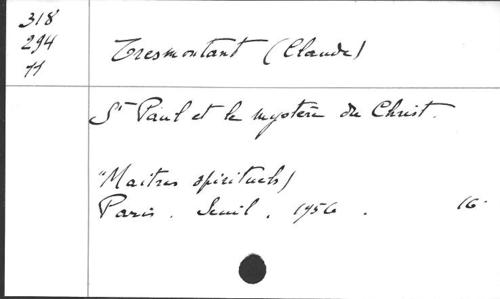 318
294
11
Tresmontant (Claude)
St Paul et le mystère du Christ.
"Maitres spirituels)
Paris. Seuil. 1956. 16°